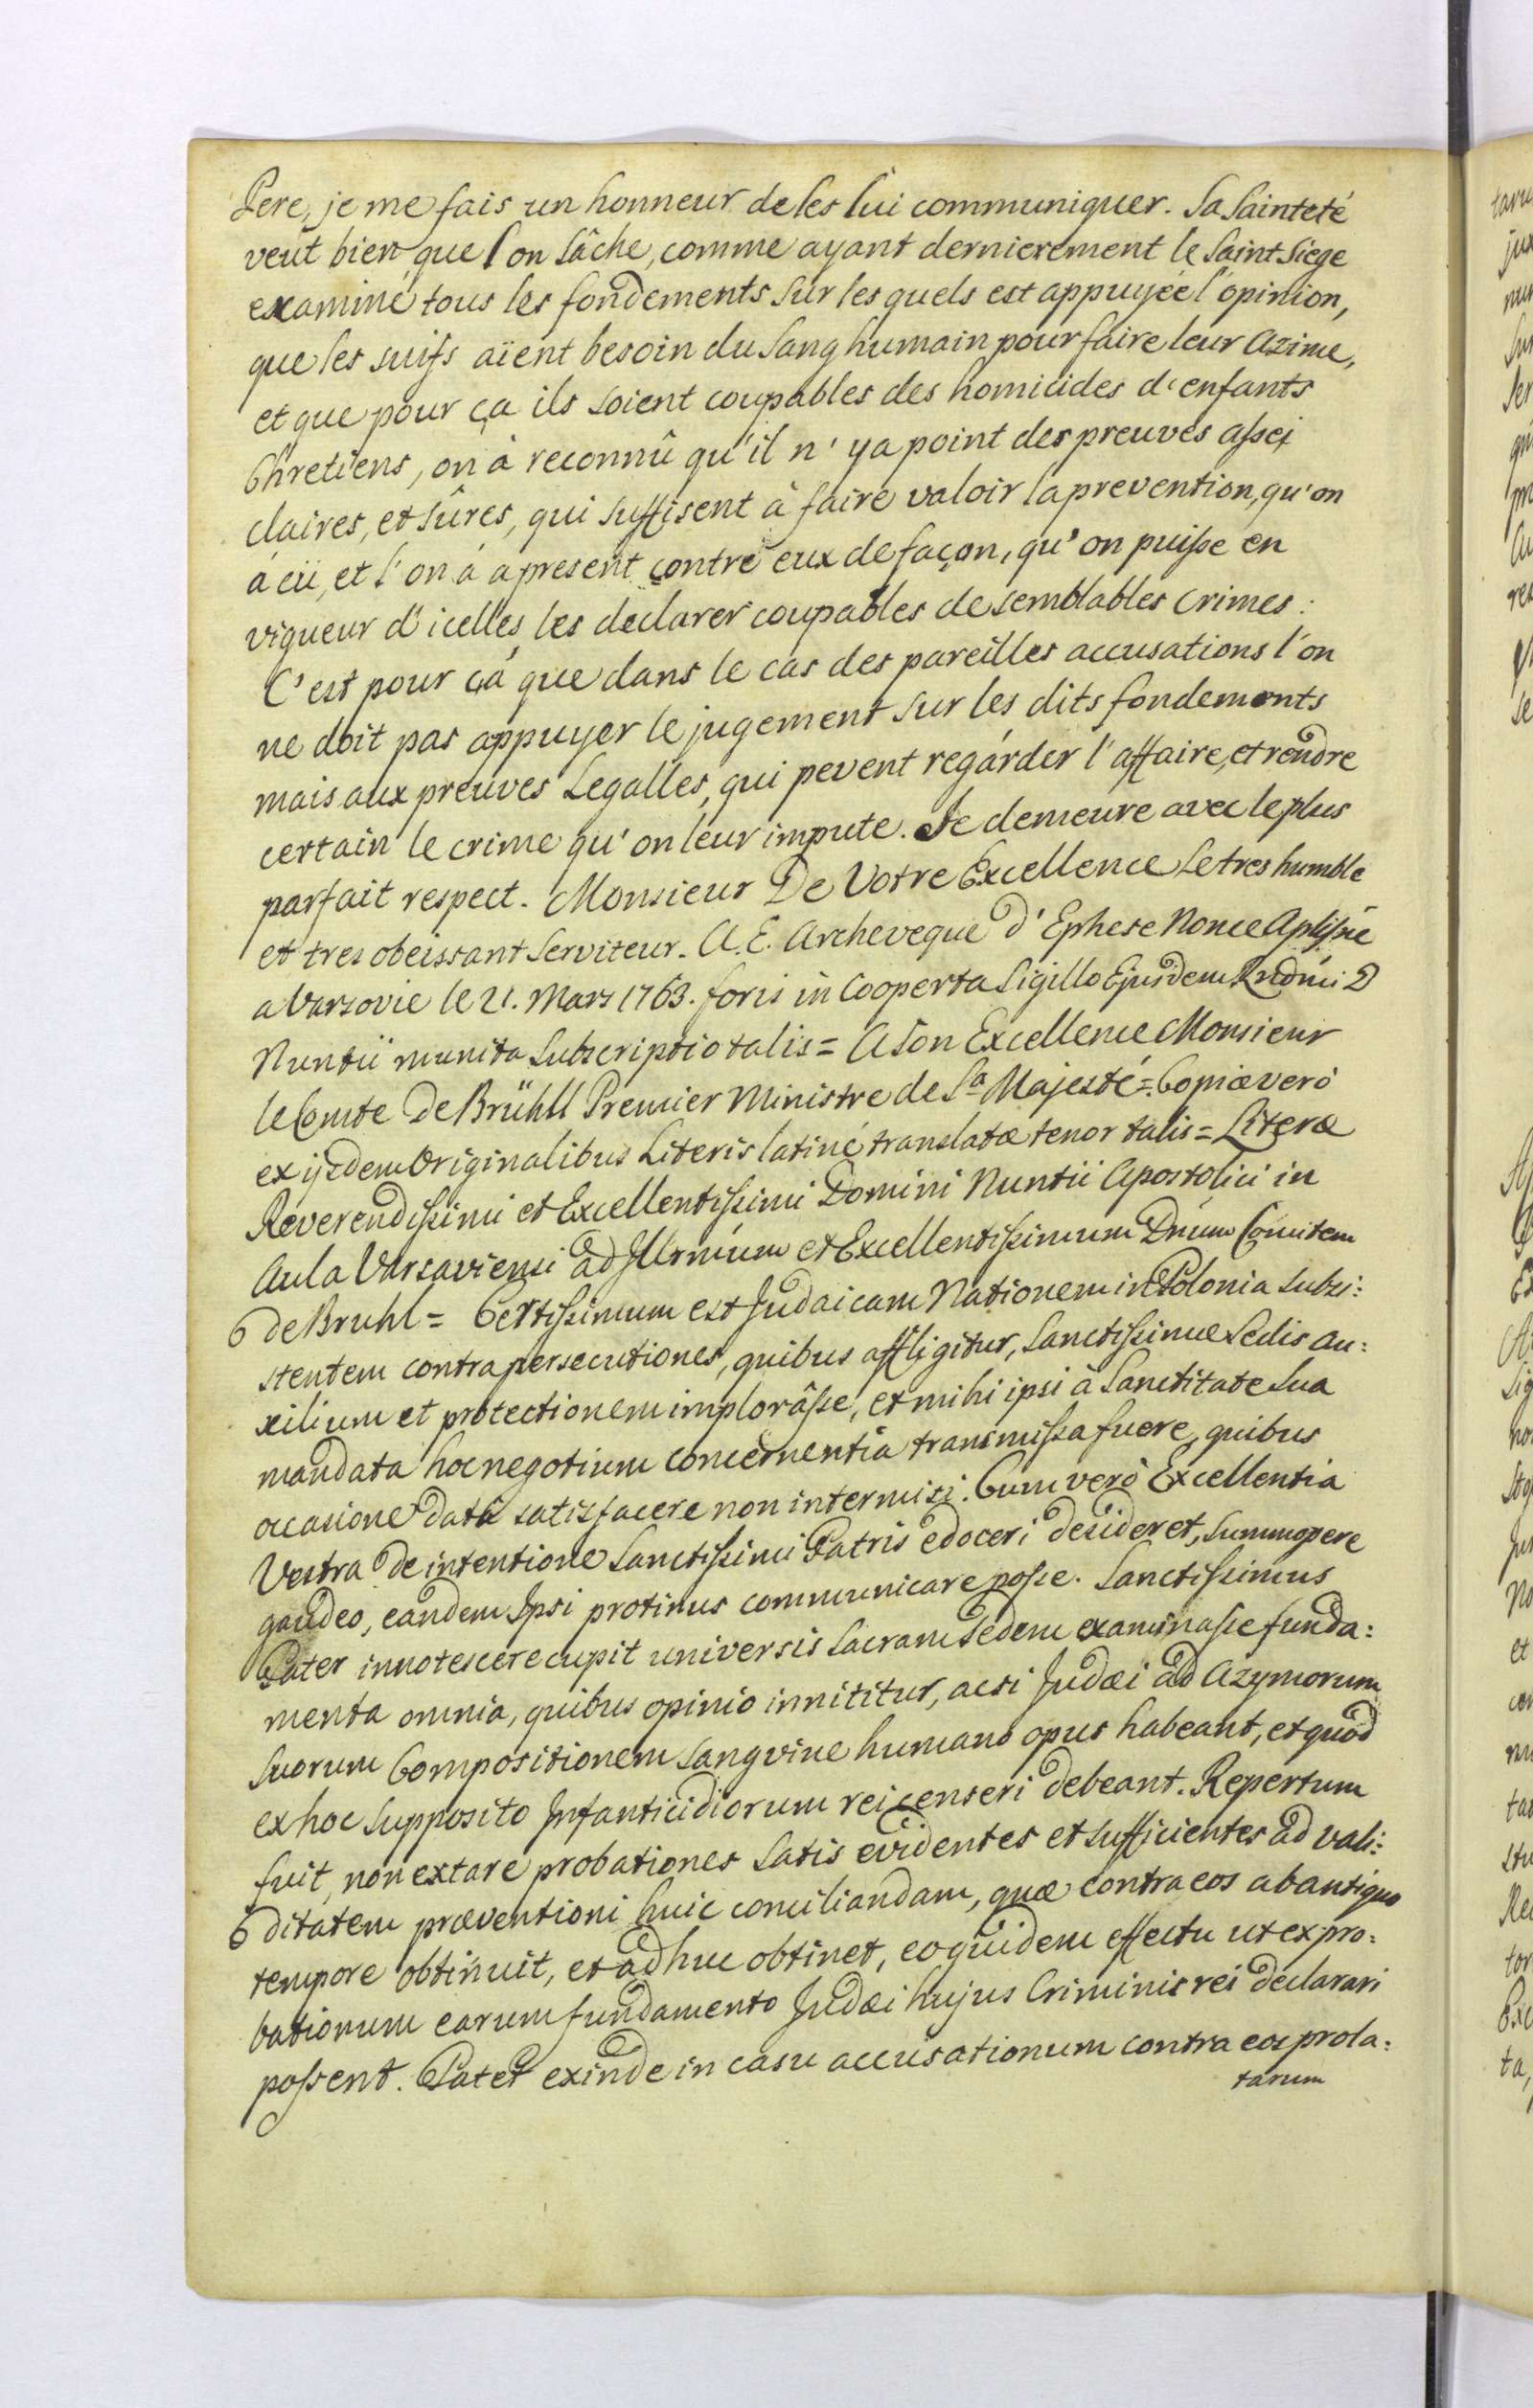 Pere, je me fais un honneur de les lui communiquer. Sa Sainteté
veut bien que l'on sâche, comme ayant dernierement le Saint Siege
examiné tous les fondements sur les quels est appuyée l'opinion,
que les Juifs aïent besoin du Sang humain pour faire leur Azime,
et que pour ça ils soient coupables des homicides d'enfants
Chretiens, on à reconnû qu'il n'ya point des preuves assez
claires, et sûres, qui suffisent à faire valoir la prevention, qu'on
à eü, et l'on à apresent contre eux de façon, qu'on puisse en
vigueur d'icelles les declarer coupables de semblables Crimes:
C'est pour ça que dans le cas des pareilles accusations l'on
ne doit pas appuyer le jugement sur les dits fondements
mais aux preuves Legalles, qui pevent regarder l'affaire, et rendre
certain le crime qu'on leur impute. Je demeure avec le plus
parfait respect. Monsieur De Votre Excellence le tres humble
et tres obeissant Serviteur. A. E. Archeveque d'Ephese Nonce
a Varsovie le 21. Mars 1763. foris in Cooperta Sigillo Ejusdem Rndmi D
Nuntii munita Subscriptio talis = A Son Excellence Monsieur
le Comte De Brühll Premier Ministre de Sa Majesté = Copiæ verò
ex ijsdem Originalibus Literis latiné translatæ tenor talis = Literæ
Reverendissimi et Excellentissimi Domini Nuntii Apostolici in
Aula Varsaviensi ad Illrmum et Excellentissimum Dnum Comitem
de Bruhl = Certissimum est Judaicam Nationem in Polonia subsi:
stentem contra persecutiones, quibus affligitur, Sanctissimæ Sedis au:
xilium et protectionem implorâsse, et mihi ipsi à Sanctitate Sua
mandata hoc negotium concernentia transmissa fuere, quibus
occasione datâ satisfacere non intermisi. Cum verò Excellentia
Vestra de intentione Sanctissimi Patris edoceri desideret, summopere
gaudeo, eandem Ipsi protinus communicare posse. Sanctissimus
Pater innotescere cupit universis Sacram Sedem examinasse funda:
menta omnia, quibus opinio innititur, acsi Judæi ad Azymorum
suorum Compositionem sangvine humano opus habeant, et quòd
ex hoc supposito Infanticidiorum rei censeri debeant. Repertum
fuit, non extare probationes satis evidentes et sufficientes ad vali:
ditatem præventioni huic conciliandam, quæ contra eos ab antiquo
tempore obtinuit, et adhuc obtinet, eo quidem effectu ut ex pro:
bationum earum fundamento Judæi hujus Criminis rei declarari
possent. Patet exinde in casu accusationum contra eos prola:
tarum